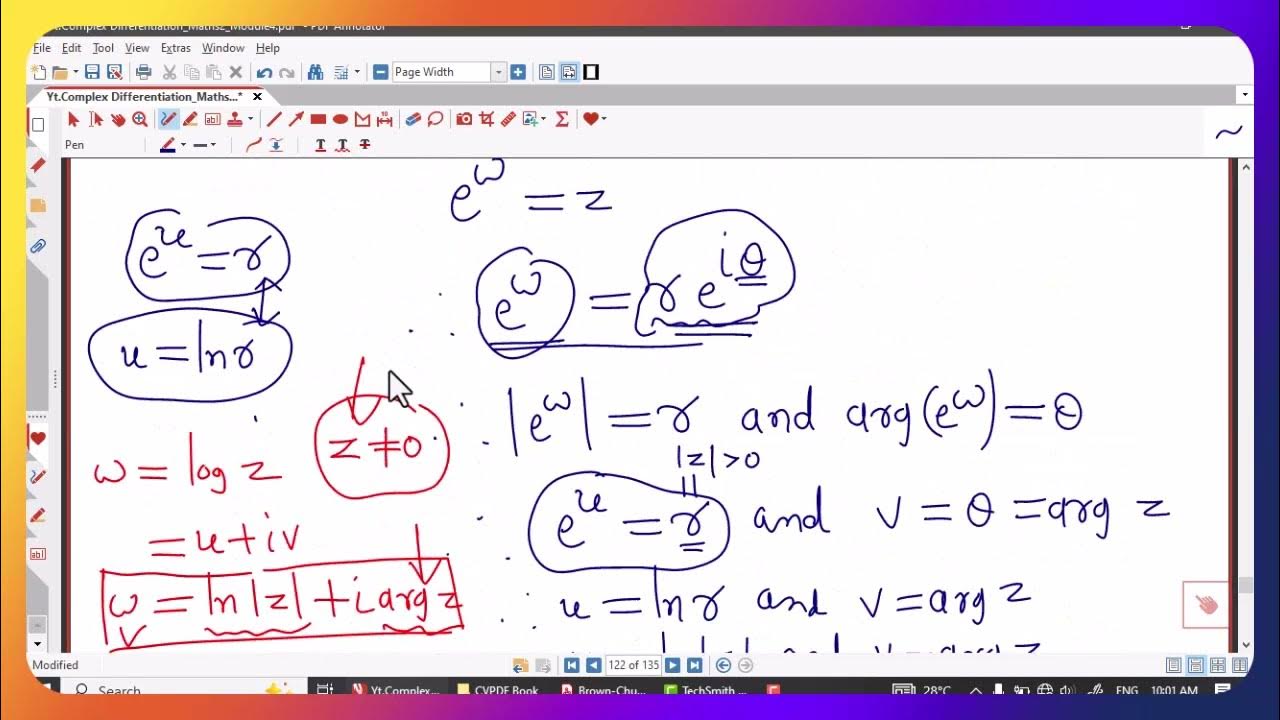 Yt.Complex Differentiation_Maths2_Module4.pdf* - PDF Annotator
File Edit Tool View Extras Window Help
Page Width
Yt.Complex Differentiation_Maths...* ×
Pen
e^w = z
e^u = r
e^w = r e^{iθ}
u = ln r
∴ |e^w| = r and arg(e^w) = θ
z ≠ 0
|z| > 0
w = log z
∴ e^u = r and v = θ = arg z
= u + iv
w = ln |z| + i arg z
∴ u = ln r and v = arg z
Modified
122 of 135
Search
Yt.Complex...
CVPDF Book
Brown-Chu...
TechSmith ...
28°C
ENG
10:01 AM